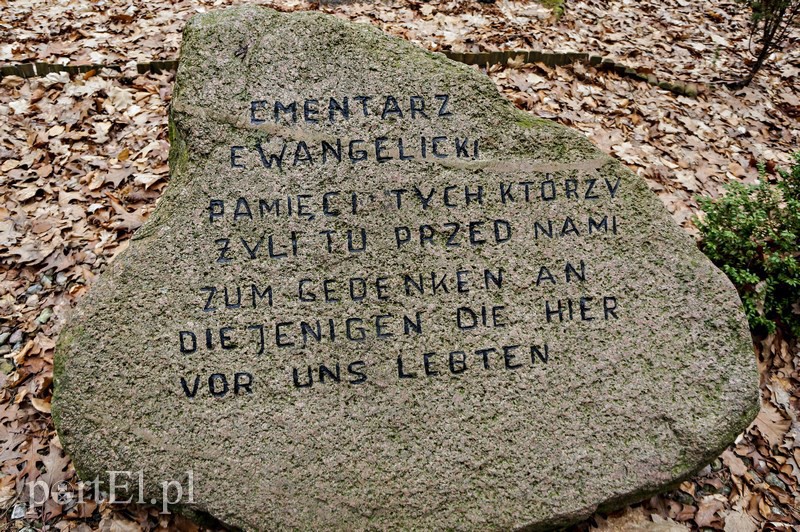 EMENTARZ
EWANGELICKI
PAMIĘCI TYCH KTÓRZY
ŻYLI TU PRZED NAMI
ZUM GEDENKEN AN
DIEJENIGEN DIE HIER
VOR UNS LEBTEN
partEl.pl